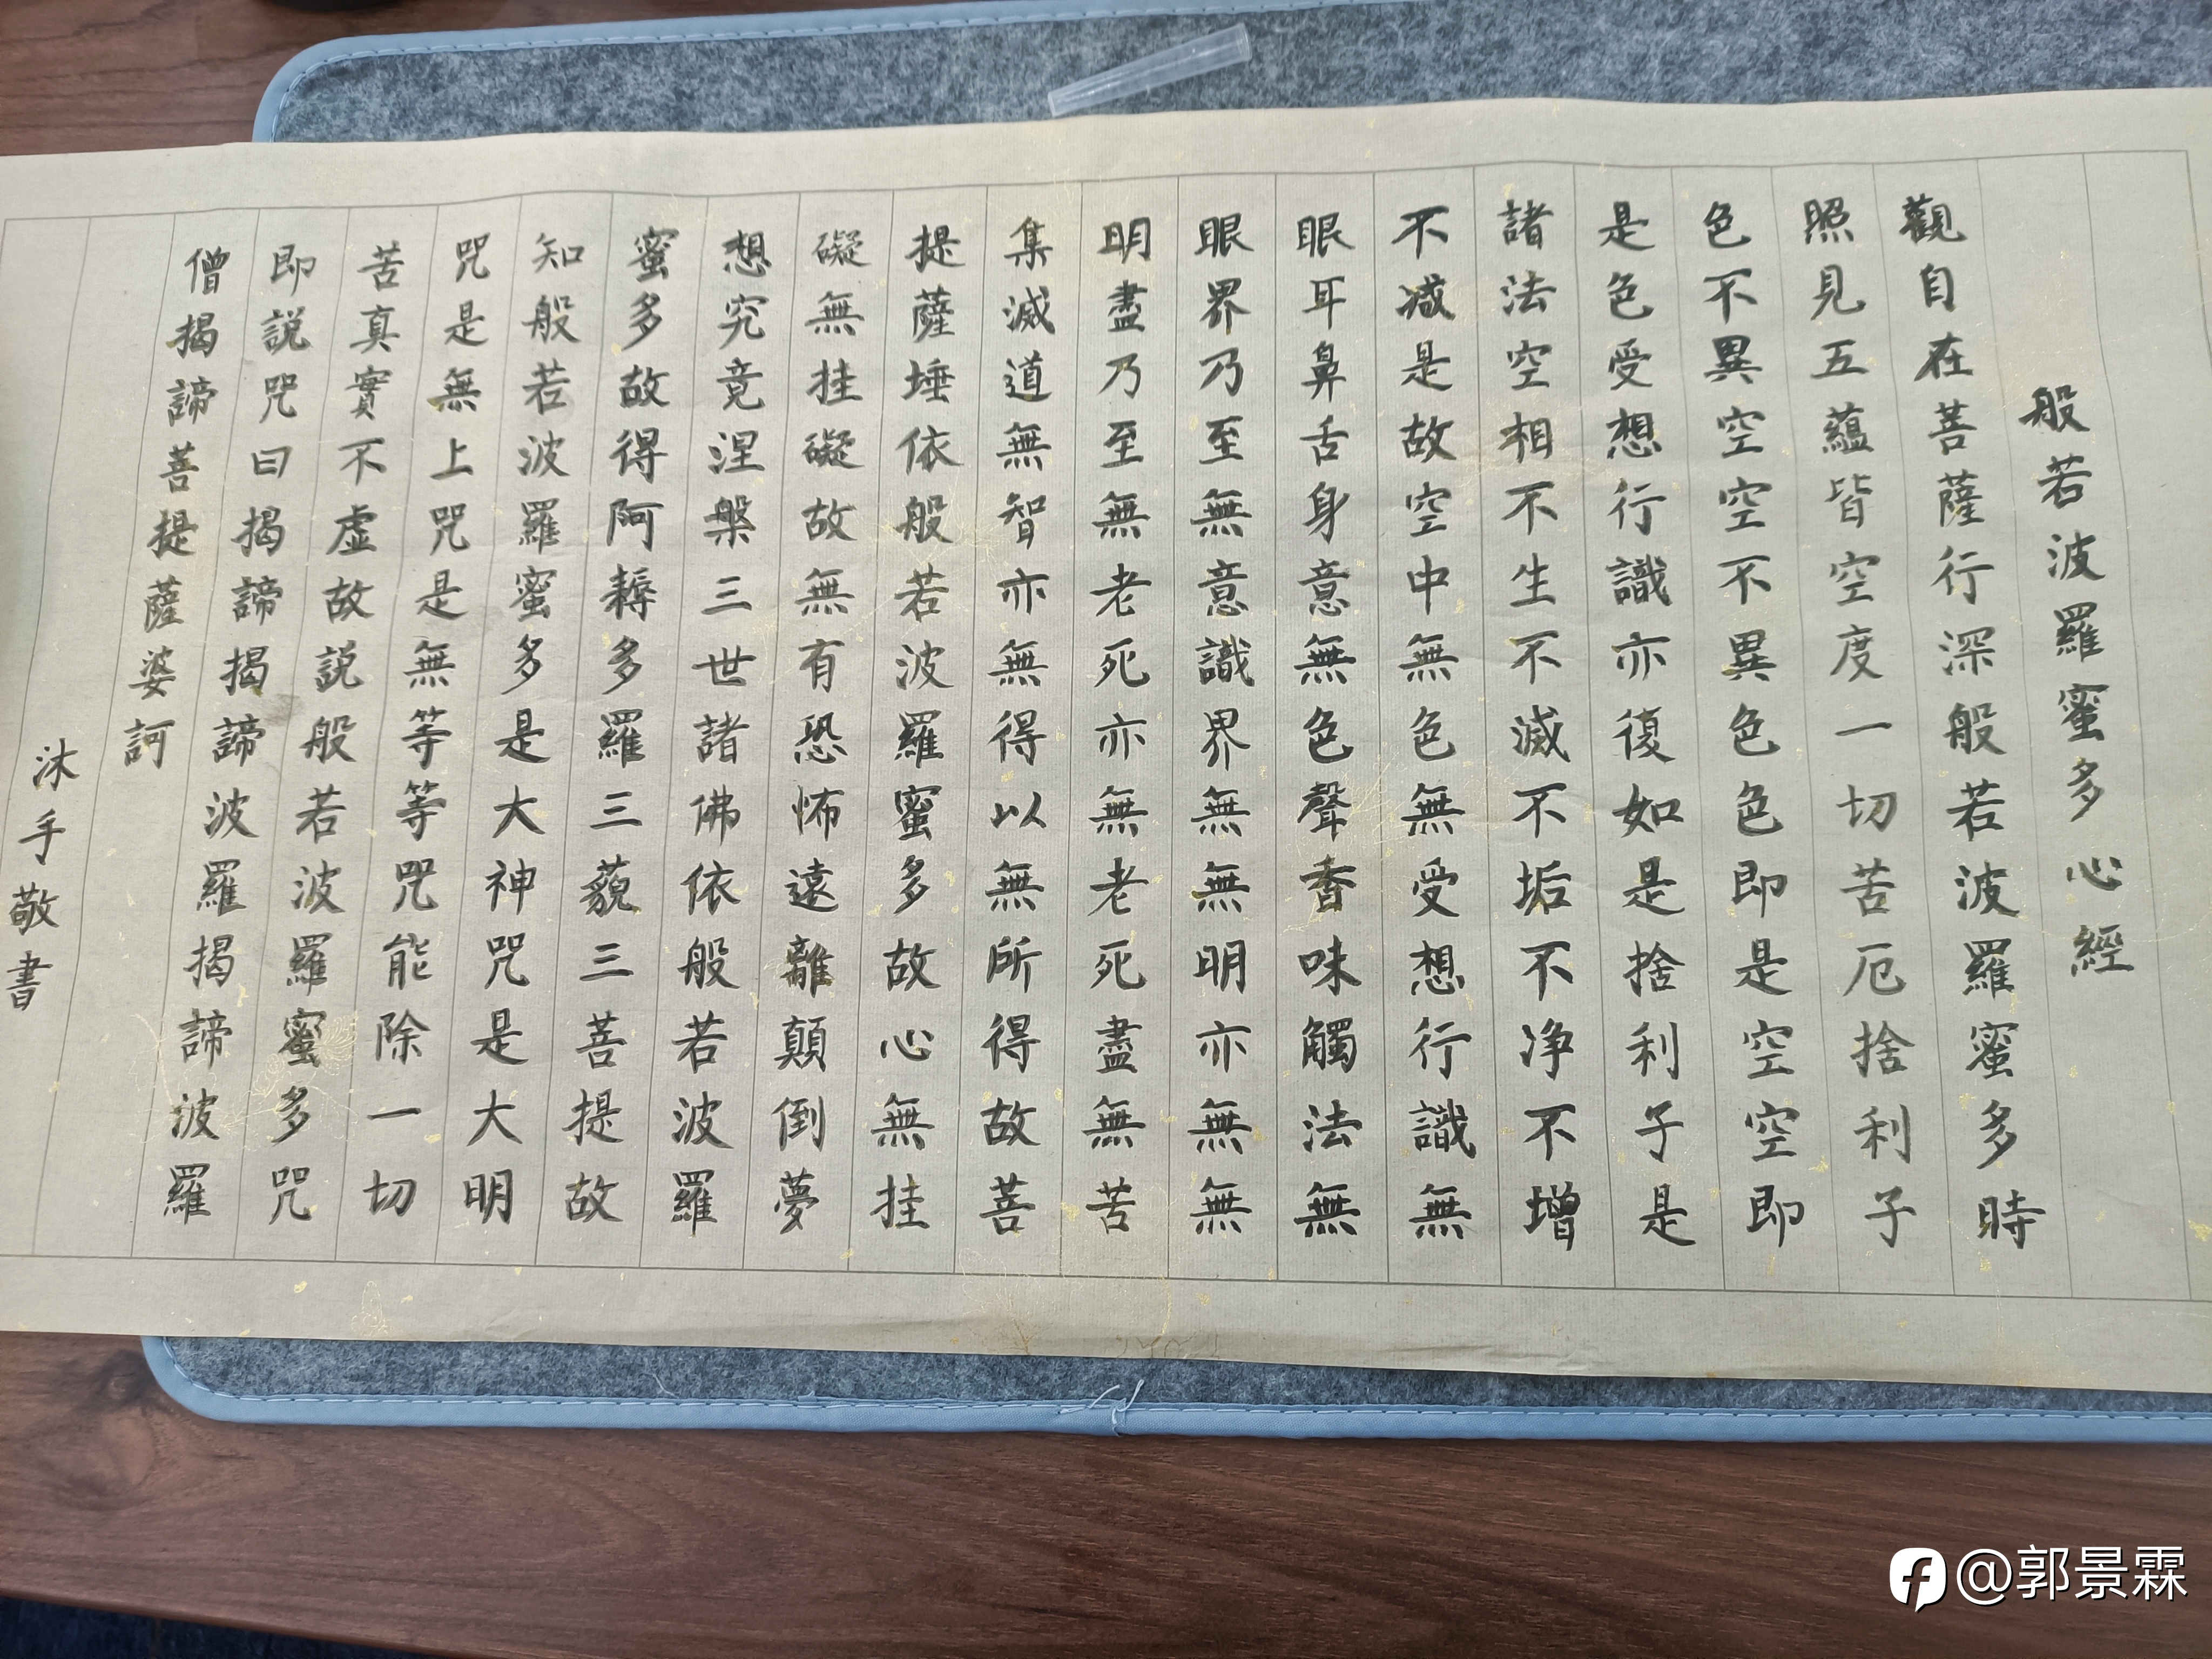 般若波羅蜜多心經
觀自在菩薩行深般若波羅蜜多時
照見五蘊皆空度一切苦厄捨利子
色不異空空不異色色即是空空即
是色受想行識亦復如是捨利子是
諸法空相不生不滅不垢不净不增
不减是故空中無色無受想行識無
眼耳鼻舌身意無色聲香味觸法無
眼界乃至無意識界無無明亦無無
明盡乃至無老死亦無老死盡無苦
集滅道無智亦無得以無所得故菩
提薩埵依般若波羅蜜多故心無挂
礙無挂礙故無有恐怖遠離顛倒夢
想究竟涅槃三世諸佛依般若波羅
蜜多故得阿耨多羅三藐三菩提故
知般若波羅蜜多是大神咒是大明
咒是無上咒是無等等咒能除一切
苦真實不虛故説般若波羅蜜多咒
即説咒曰揭諦揭諦波羅揭諦波羅
僧揭諦菩提薩婆訶
沐手敬書
@郭景霖